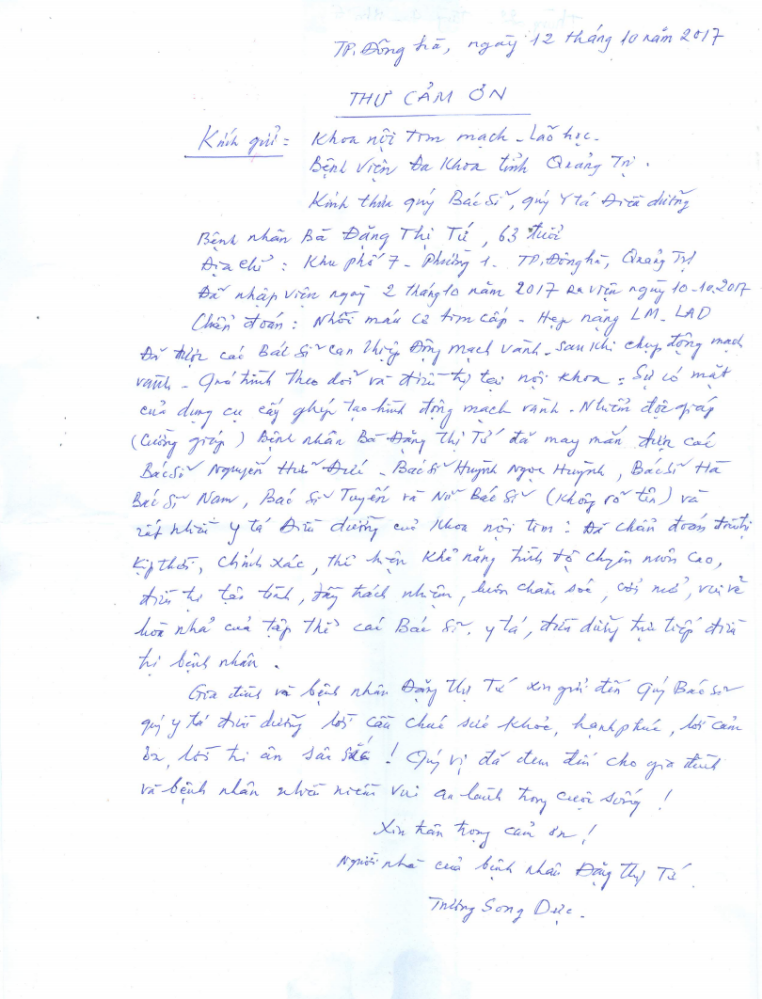 TP. Đông hà, ngày 12 tháng 10 năm 2017
THƯ CẢM ƠN
Kính gửi: Khoa nội tim mạch - Lão học.
Bệnh viện Đa Khoa tỉnh Quảng Trị.
Kính thưa quý Bác Sĩ, quý Y tá Điều dưỡng
Bệnh nhân Bà Đặng Thị Tứ, 63 tuổi
Địa chỉ: Khu phố 7 - Phường 1 - TP. Đông hà, Quảng Trị
Đã nhập viện ngày 2 tháng 10 năm 2017 ra viện ngày 10-10-2017
Chẩn đoán: Nhồi máu cơ tim cấp - Hẹp nặng LM - LAD
Đã được các Bác Sĩ can thiệp Động mạch vành - sau khi chụp động mạch
vành - Quá trình theo dõi và điều trị tại nội khoa: Sự có mặt
của dụng cụ cấy ghép tạo hình động mạch vành. Nhiễm độc giáp
(Cường giáp) Bệnh nhân Bà Đặng Thị Tứ đã may mắn được các
Bác Sĩ Nguyễn Hữu Đức - Bác Sĩ Huỳnh Ngọc Huỳnh, Bác Sĩ Hà
Bác Sĩ Nam, Bác Sĩ Tuyến và Nữ Bác Sĩ (Không rõ tên) và
rất nhiều y tá Điều dưỡng của Khoa nội tim: Đã chẩn đoán điều trị
kịp thời, chính xác, thể hiện khả năng trình độ chuyên môn cao,
điều trị tận tình, đầy trách nhiệm, luôn chăm sóc, cởi mở, vui vẻ
hòa nhã của tập thể các Bác Sĩ, y tá, điều dưỡng trực tiếp điều
trị bệnh nhân.
Gia đình và bệnh nhân Đặng Thị Tứ xin gửi đến Quý Bác sĩ
quý y tá điều dưỡng lời cầu chúc sức khỏe, hạnh phúc, lời cảm
ơn, lời tri ân sâu sắc! Quý vị đã đem đến cho gia đình
và bệnh nhân nhiều niềm vui an lành trong cuộc sống!
Xin trân trọng cảm ơn!
Người nhà của bệnh nhân Đặng Thị Tứ
Trương Song Đức.